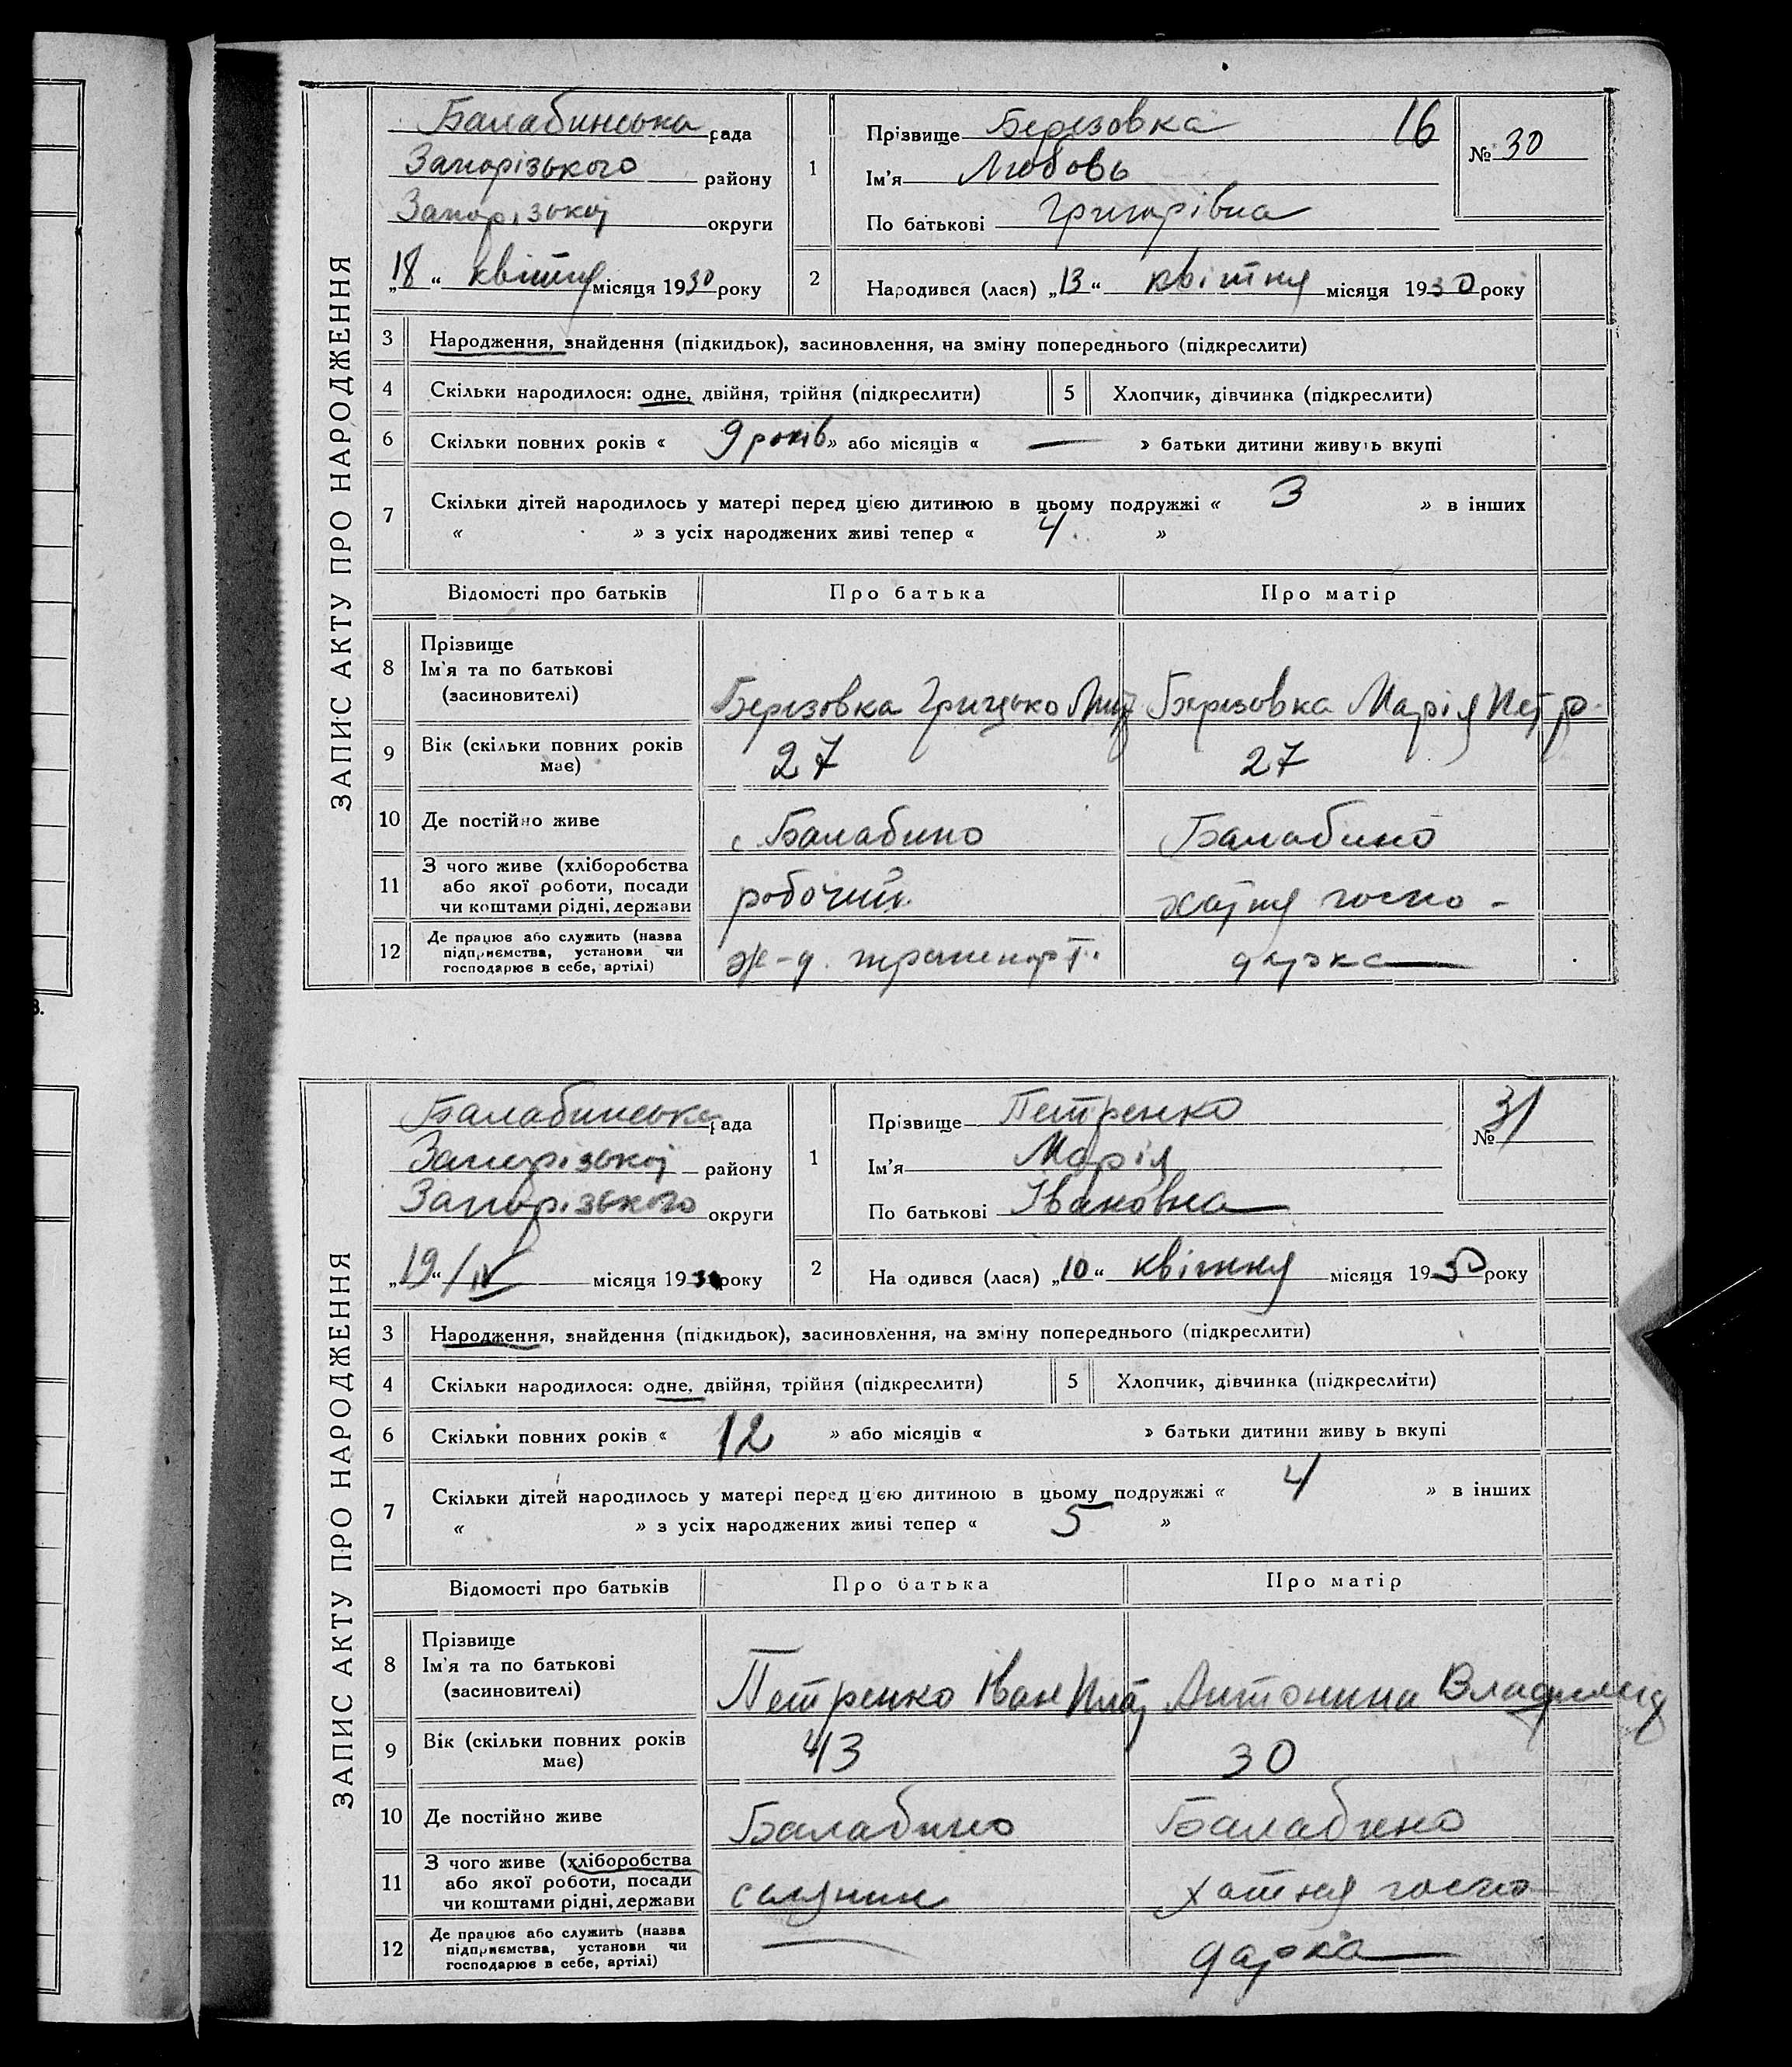 ЗАПИС АКТУ ПРО НАРОДЖЕННЯ
Балабинська рада
Запорізького району
Запорізької округи
„18“ квітня місяця 1930 року
1
Прізвище Березовка 16
Ім'я Любовь
По батькові Григорівна
№ 30
2
Народився (лася) „13“ квітня місяця 1930 року
3 Народження, знайдення (підкидьок), засиновлення, на зміну попереднього (підкреслити)
4 Скільки народилося: одне, двійня, трійня (підкреслити) 5 Хлопчик, дівчинка (підкреслити)
6 Скільки повних років « 9 років » або місяців « — » батьки дитини живуть вкупі
7 Скільки дітей народилось у матері перед цією дитиною в цьому подружжі « 3 » в інших
« » з усіх народжених живі тепер « 4 »
Відомості про батьків Про батька Про матір
8 Прізвище
Ім'я та по батькові
(засиновителі)
Березовка Грицько Березовка Марія Петр.
9 Вік (скільки повних років має) 27 27
10 Де постійно живе с. Балабино Балабино
11 З чого живе (хліборобства
або якої роботи, посади
чи коштами рідні, держави
робочий хатня госпо-
12 Де працює або служить (назва
підприємства, установи чи
господарює в себе, артілі)
ж-д. транспорт. дарка
ЗАПИС АКТУ ПРО НАРОДЖЕННЯ
Балабинська рада
Запорізької району
Запорізького округи
„19“/IV місяця 1930 року
1
Прізвище Петренко
Ім'я Марія
По батькові Івановна
№ 31
2
Народився (лася) „10“ квітня місяця 1930 року
3 Народження, знайдення (підкидьок), засиновлення, на зміну попереднього (підкреслити)
4 Скільки народилося: одне, двійня, трійня (підкреслити) 5 Хлопчик, дівчинка (підкреслити)
6 Скільки повних років « 12 » або місяців « » батьки дитини живуть вкупі
7 Скільки дітей народилось у матері перед цією дитиною в цьому подружжі « 4 » в інших
« » з усіх народжених живі тепер « 5 »
Відомості про батьків Про батька Про матір
8 Прізвище
Ім'я та по батькові
(засиновителі)
Петренко Іван Плат Антонина
9 Вік (скільки повних років має) 43 30
10 Де постійно живе Балабино Балабино
11 З чого живе (хліборобства
або якої роботи, посади
чи коштами рідні, держави
селянин хатня госпо
12 Де працює або служить (назва
підприємства, установи чи
господарює в себе, артілі)
— дарка